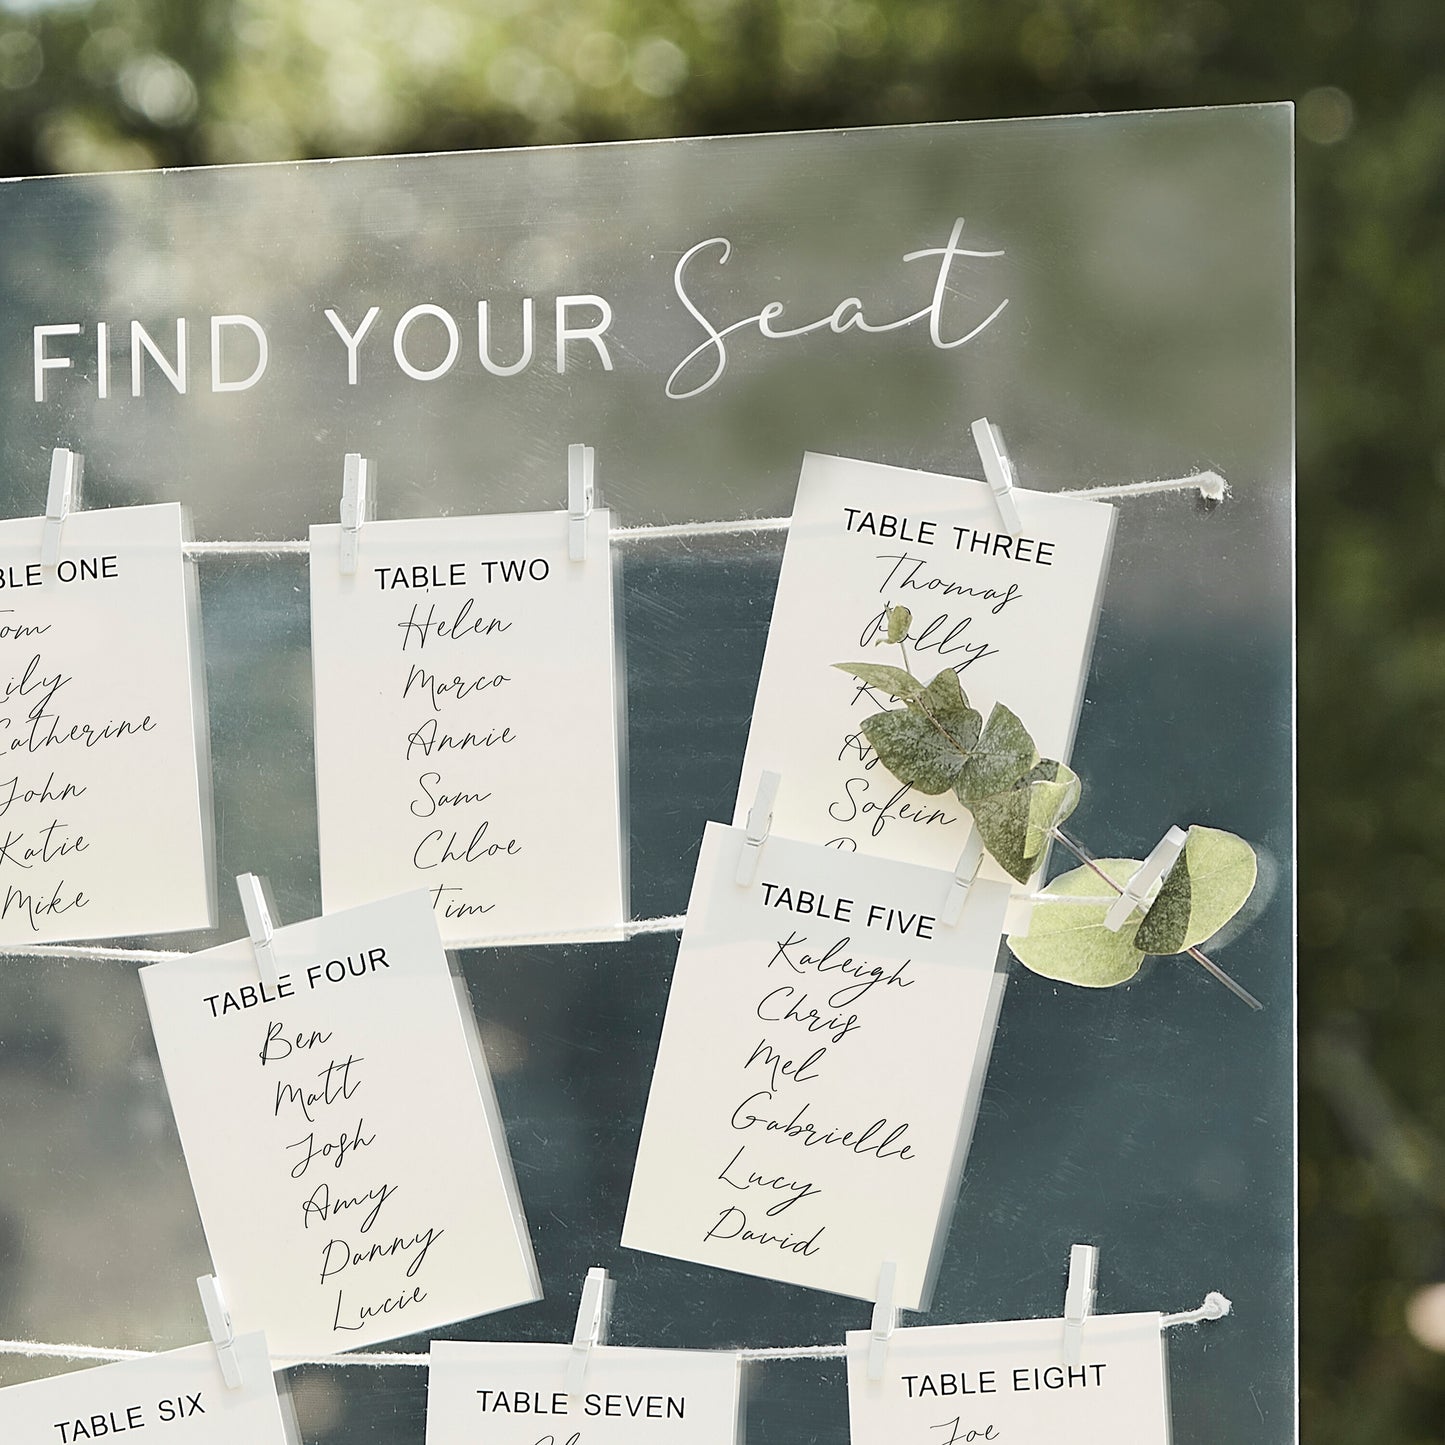 FIND YOUR Seat
TABLE ONE
Tom
Lily
Catherine
John
Katie
Mike
TABLE TWO
Helen
Marco
Annie
Sam
Chloe
Tim
TABLE THREE
Thomas
Polly
Sofein
TABLE FOUR
Ben
Matt
Josh
Amy
Danny
Lucie
TABLE FIVE
Kaleigh
Chris
Mel
Gabrielle
Lucy
David
TABLE SIX
TABLE SEVEN
TABLE EIGHT
Joe